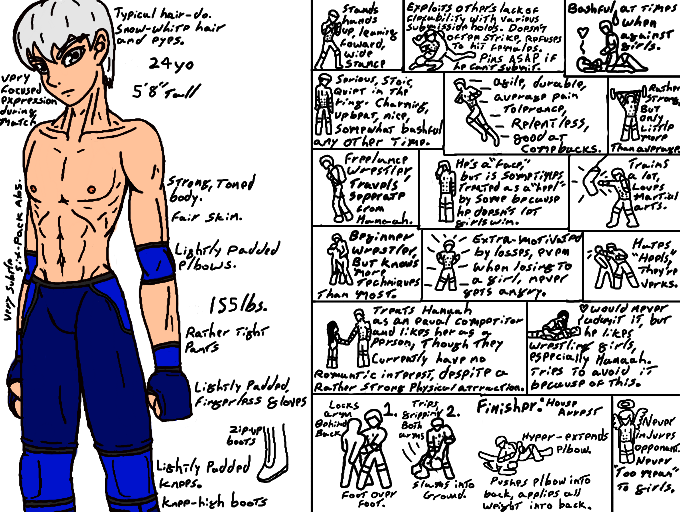 Typical hair-do.
Snow-white hair
and eyes.
24 yo
5'8" Tall
very
focused
expression
during
match
Strong, Toned
body.
Fair skin.
Very subtle
Six-Pack Abs.
Lightly Padded
elbows.
155lbs.
Rather Tight
Pants
Lightly Padded,
Fingerless gloves
Zip-up
boots
Lightly Padded
knees.
knee-high boots
Stands
hands
up, leaning
foward,
wide
stance
Exploits other's lack of
flexability with various
submission holds. Doesn't
often strike, Refuses
to hit females.
Pins ASAP if
he can't submit.
Bashful at times
when
against
girls.
Serious, Stoic,
Quiet in the
ring. Charming,
upbeat, nice,
somewhat bashful
any other time.
Agile, durable,
average pain
tolerance,
Relentless,
good at
comebacks.
Rather
Strong,
But
only
Little
more
Than average.
Freelance
wrestler,
Travels
seperate
from
Hannah.
He's a "face,"
but is sometimes
treated as a "heel"
by some because
he doesn't let
girls win.
Trains
a lot,
Loves
martial
arts.
Beginner
wrestler,
But knows
more
techniques
Than most.
Extra-motivated
by losses, even
when losing to
a girl, never
gets angry.
Hates
"Heels,"
They're
Jerks.
Treats Hannah
as an equal competitor
and likes her as a
person, Though they
currently have no
Romantic interest, despite a
Rather strong Physical attraction.
would never
admit it, but
he likes
wrestling girls,
especially Hannah.
Tries to avoid it
because of this.
Locks
arm
Behind
Back
1.
Foot over
Foot.
Trips,
gripping
Both
arms
2.
Slams into
Ground.
Finisher: "House
Arrest"
Hyper-extends
elbow.
Pushes elbow into
back, applies all
weight into back.
Never
injures
opponent.
Never
"Too mean"
To girls.